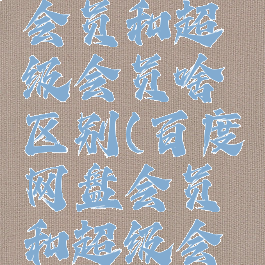 会员和超
级会员啥
区别(百度
网盘会员
和超级会